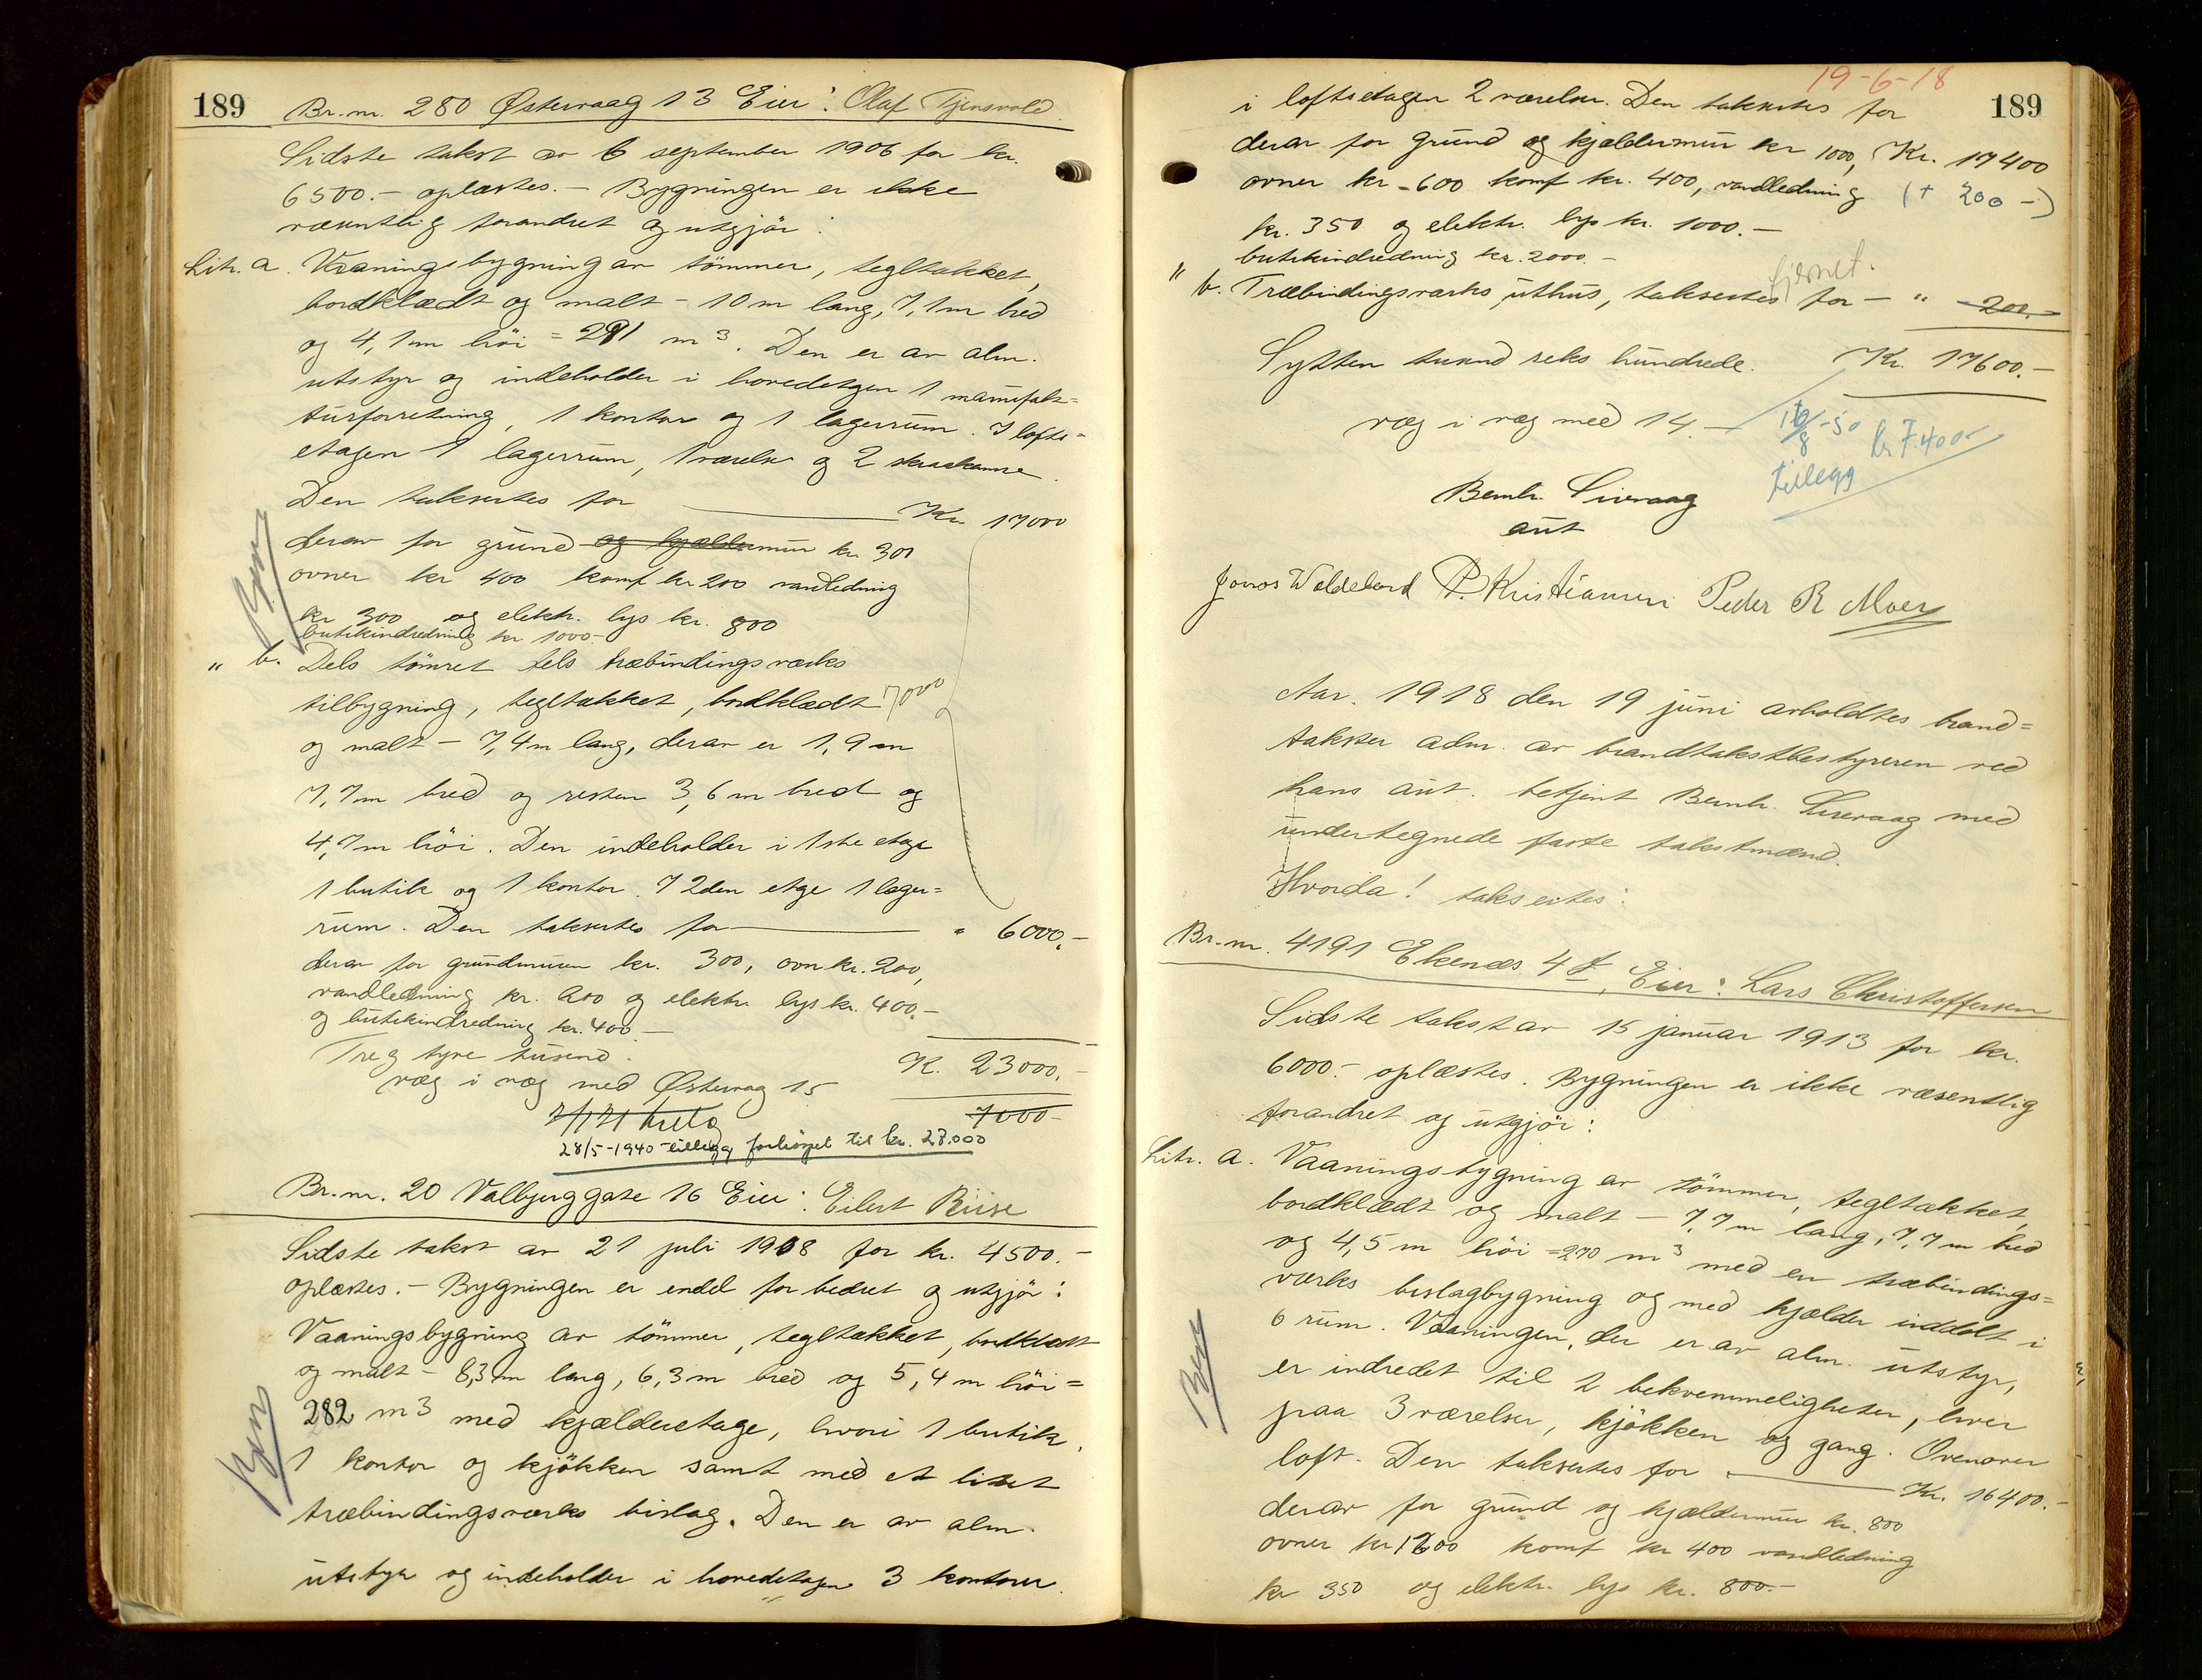 189
Br.nr. 280 Østervaag 13 Eier: Olaf Tjensvold.
Sidste takst av 6 september 1906 for kr.
6500.- oplæstes. - Bygningen er ikke
væsentlig forandret og utgjør:
Litr. a. Vaaningsbygning av tømmer, tegltækket,
bordklædt og malt - 10 m lang, 7,1 m bred
og 4,1 m høi = 291 m³. Den er av alm.
utstyr og indeholder i hovedetagen 1 manufak-
turforretning, 1 kontor og 1 lagerrum. I lofts-
etagen 1 lagerrum, 1 værelse og 2 skraakamre.
Den taksertes for Kr. 17000
derav for grund og kjældermur kr. 300
ovner kr 400 komf kr 200 vandledning
kr 300 og elektr. lys kr. 800
butikindredning kr 1000.-
" b. Dels tømret dels træbindingsværks
tilbygning, tegltækket, bordklædt 7000
og malt - 7,4 m lang, derav er 1,9 m
7,7 m bred og resten 3,6 m bred og
4,7 m høi. Den indeholder i 1ste etage
1 butik og 1 kontor. I 2den etge 1 lager-
rum. Den taksertes for " 6000.-
derav for grundmuren kr. 300, ovn kr. 200,
vandledning kr. 200 og elektr. lys kr. 400.-
og butikindredning kr. 400.-
Tre og tyve tusend. K. 23000.-
væg i væg med Østervag 15
7000-
28/5-1940 tillegg forhøyet til kr. 28.000
Br.nr. 20 Valbjerggate 16 Eier: Eilert Riise
Sidste takst av 21 juli 1908 for kr. 4500.-
oplæstes. - Bygningen er endel forbedret og utgjør:
Vaaningsbygning av tømmer, tegltækket, bordklædt
og malt - 8,3 m lang, 6,3 m bred og 5,4 m høi =
282 m³ med kjælderetage, hvori 1 butik,
1 kontor og kjøkken samt med et litet
træbindingsværks bislag. Den er av alm.
utstyr og indeholder i hovedetagen 3 kontorer.
19-6-18
189
i loftsetagen 2 værelser. Den taksertes for
derav for grund og kjældermur kr 1000, Kr. 17400
ovner kr 600 komf kr. 400, vandledning (+ 200 -)
kr. 350 og elektr. lys kr. 1000.-
butikindredning kr. 2000.-
fjernet.
" b. Træbindingsværks uthus, taksertes for - " 200.-
Sytten tusend seks hundrede. Kr. 17600.-
væg i væg med 14.-
16/8-50 kr 7.400-
tillegg
Bernh. Liveraag
aut
Jonas Woldeland P. Kristiansen Peder R Moer
Aar. 1918 den 19 juni avholdtes brand-
takster adm. av brandtakstbestyreren ved
hans aut. betjent Bernh. Liveraag med
undertegnede faste takstmænd.
Hvorda! taksertes:
Br.nr. 4191 Ekenæs 4 f, Eier: Lars Christoffersen
Sidste takst av 15 januar 1913 for kr.
6000.- oplæstes. Bygningen er ikke væsentlig
forandret og utgjør:
Litr. a. Vaaningsbygning av tømmer, tegltækket,
bordklædt og malt - 7,7 m lang, 7,7 m bred
og 4,5 m høi = 270 m³ med en træbindings-
værks bislagbygning og med kjælder inddelt i
6 rum. Vaaningen, der er av alm. utstyr,
er indredet til 2 bekvemmeligheter, hver
paa 3 værelser, kjøkken og gang. Ovenover
loft. Den taksertes for Kr. 16400.-
derav for grund og kjældermur kr. 800
ovner kr 1200 komf kr 400 vandledning
kr 350 og elektr. lys kr. 800.-